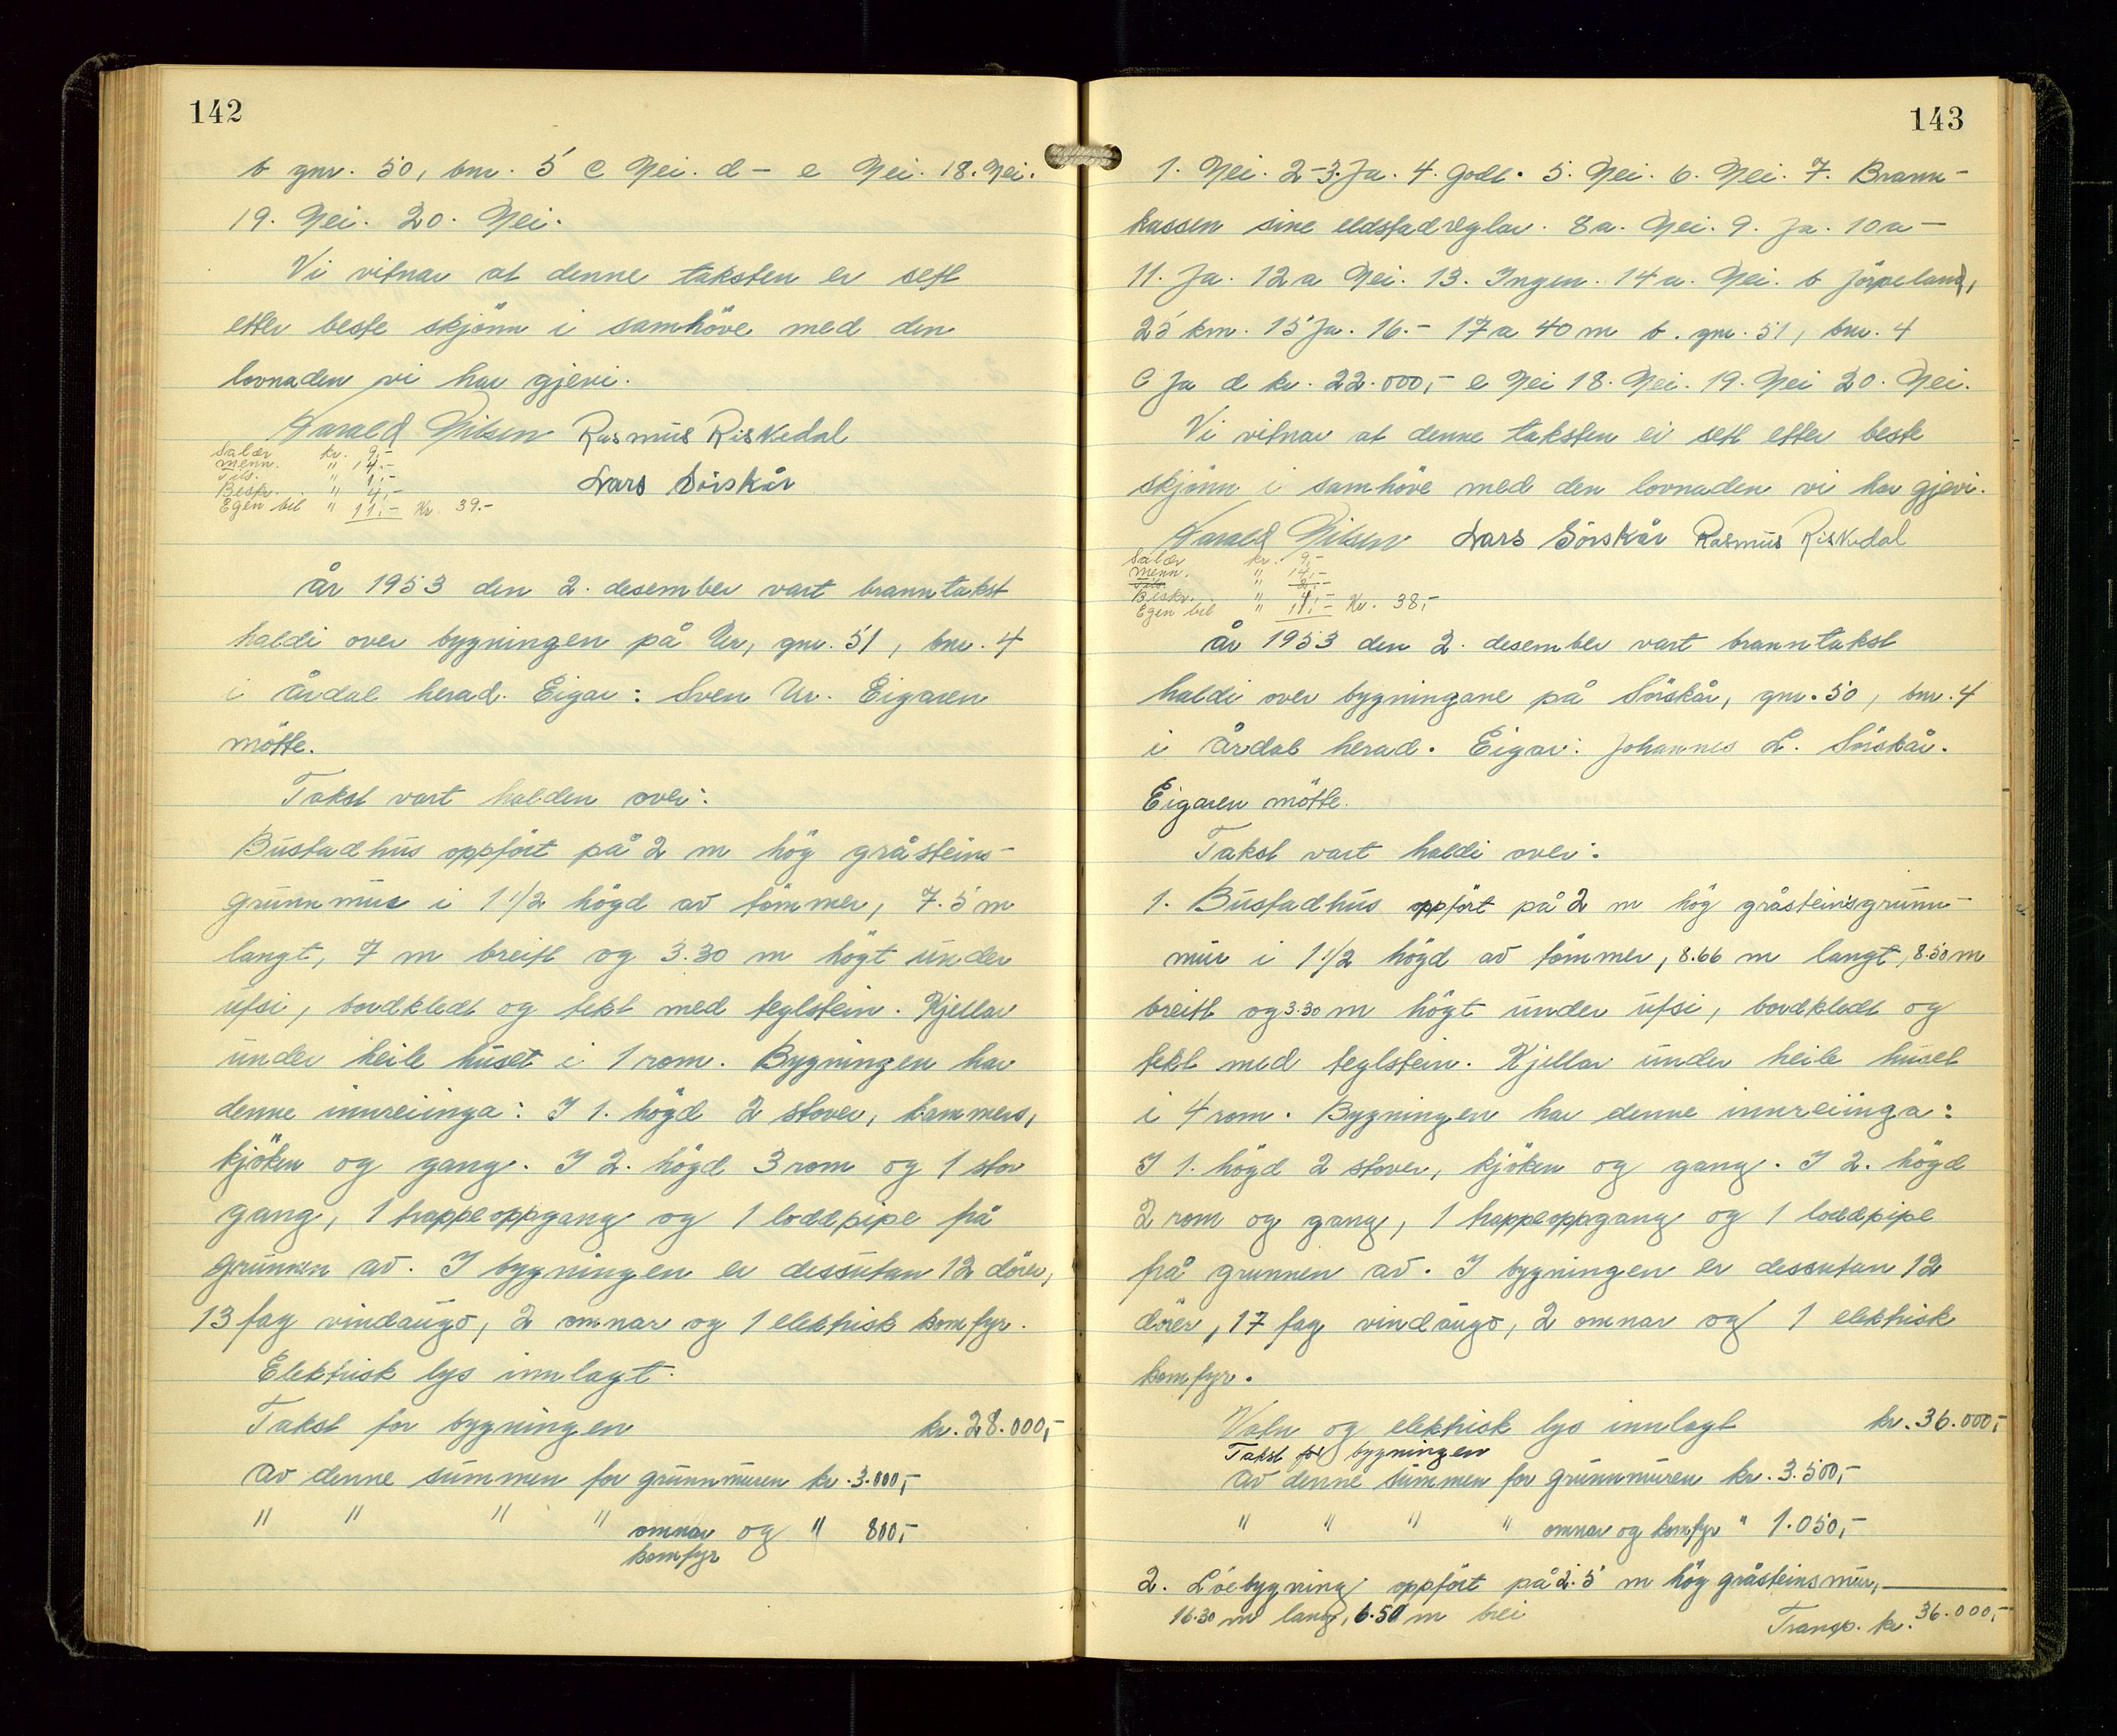 142
b gnr. 50, bnr. 5 c Nei. d - e Nei. 18. Nei.
19. Nei. 20. Nei.
Vi vitnar at denne taksten er sett
etter beste skjönn i samhöve med den
lovnaden vi har gjevi.
Harald Nilsen Rasmus Riskedal
Lars Sörskår
Salær kr. 9,-
Menn. " 14.-
Tils. " 1,-
Beskr. " 4,-
Egen bil " 11,- Kr. 39.-
År 1953 den 2. desember vart branntakst
haldi over bygningen på Ur, gnr. 51, bnr. 4
i Årdal herad. Eigar: Sven Ur. Eigaren
mötte.
Takst vart halden over:
Bustadhus oppfört på 2 m hög gråsteins-
grunnmur i 1 1/2 högd av tömmer, 7.5 m
langt, 7 m breitt og 3.30 m högt under
ufsi, bordkledt og tekt med teglstein. Kjellar
under heile huset i 1 rom. Bygningen har
denne innreiinga: I 1. högd 2 stover, kammers,
kjöken og gang. I 2. högd 3 rom og 1 stor
gang, 1 trappeoppgang og 1 loddpipe frå
grunnen av. I bygningen er dessutan 12 dörer,
13 fag vindaugo, 2 omnar og 1 elektrisk komfyr.
Elektrisk lys innlagt.
Takst for bygningen kr. 28.000,-
Av denne summen for grunnmuren kr. 3.000,-
" " " " omnar og " 800,-
komfyr
143
1. Nei. 2-3. Ja. 4. Godt. 5. Nei. 6. Nei. 7. Brann-
kassen sine eldstadreglar. 8a. Nei. 9. Ja. 10a -
11. Ja. 12a Nei. 13. Ingen. 14a. Nei. b Jörpeland,
25 km. 15 Ja. 16. - 17a 40 m b. gnr. 51, bnr. 4
c Ja d kr. 22.000,- e Nei 18. Nei. 19. Nei 20. Nei.
Vi vitnar at denne taksten er sett etter beste
skjönn i samhöve med den lovnaden vi har gjevi.
Harald Nilsen Lars Sörskår Rasmus Riskedal
Salær kr. 9,-
Menn. " 14,-
Tils. "
Beskr. " 4,-
Egen bil " 11,- Kr. 38,-
År 1953 den 2. desember vart branntakst
haldi over bygningane på Sörskår, gnr. 50, bnr. 4
i Årdal herad. Eigar: Johannes L. Sörskår.
Eigaren mötte.
Takst vart haldi over:
1. Bustadhus oppfört på 2 m hög gråsteinsgrunn-
mur i 1 1/2 högd av tömmer, 8.66 m langt, 8.50 m
breitt og 3.30 m högt under ufsi, bordkledt og
tekt med teglstein. Kjellar under heile huset
i 4 rom. Bygningen har denne innreiinga:
I 1. högd 2 stover, kjöken og gang. I 2. högd
2 rom og gang, 1 trappeoppgang og 1 loddpipe
frå grunnen av. I bygningen er dessutan 12
dörer, 17 fag vindaugo, 2 omnar og 1 elektrisk
komfyr.
Vatn og elektrisk lys innlagt kr. 36.000,-
Takst for bygningen
Av denne summen for grunnmuren kr. 3.500,-
" " " " omnar og komfyr " 1.050,-
2. Löebygning oppfört på 2.5 m hög gråsteinsmur,
16.30 m lang, 6.50 m brei
Transp. kr. 36.000,-